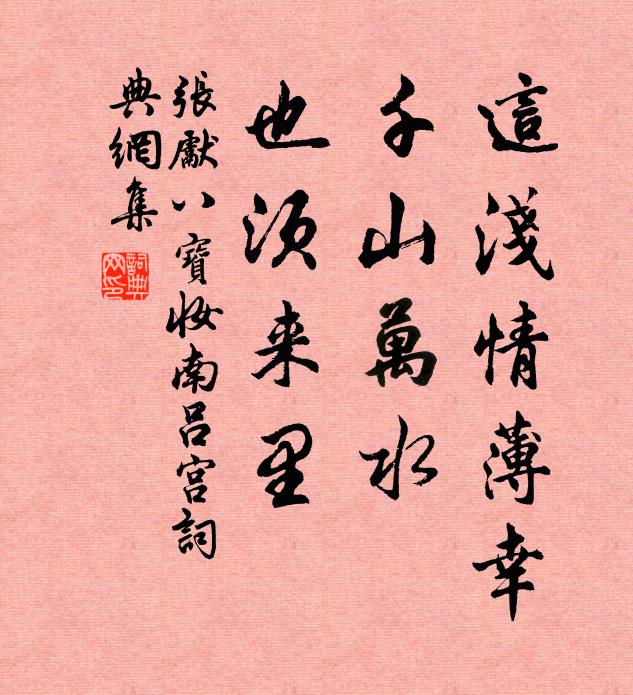 這淺情薄幸
千山萬水
也須来里
張獻八寶妝南呂宮詞
典網集
詞典网印